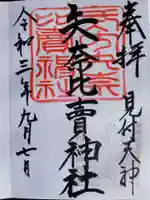 奉拝 見付天神
矢奈比賣神社
令和三年九月七日